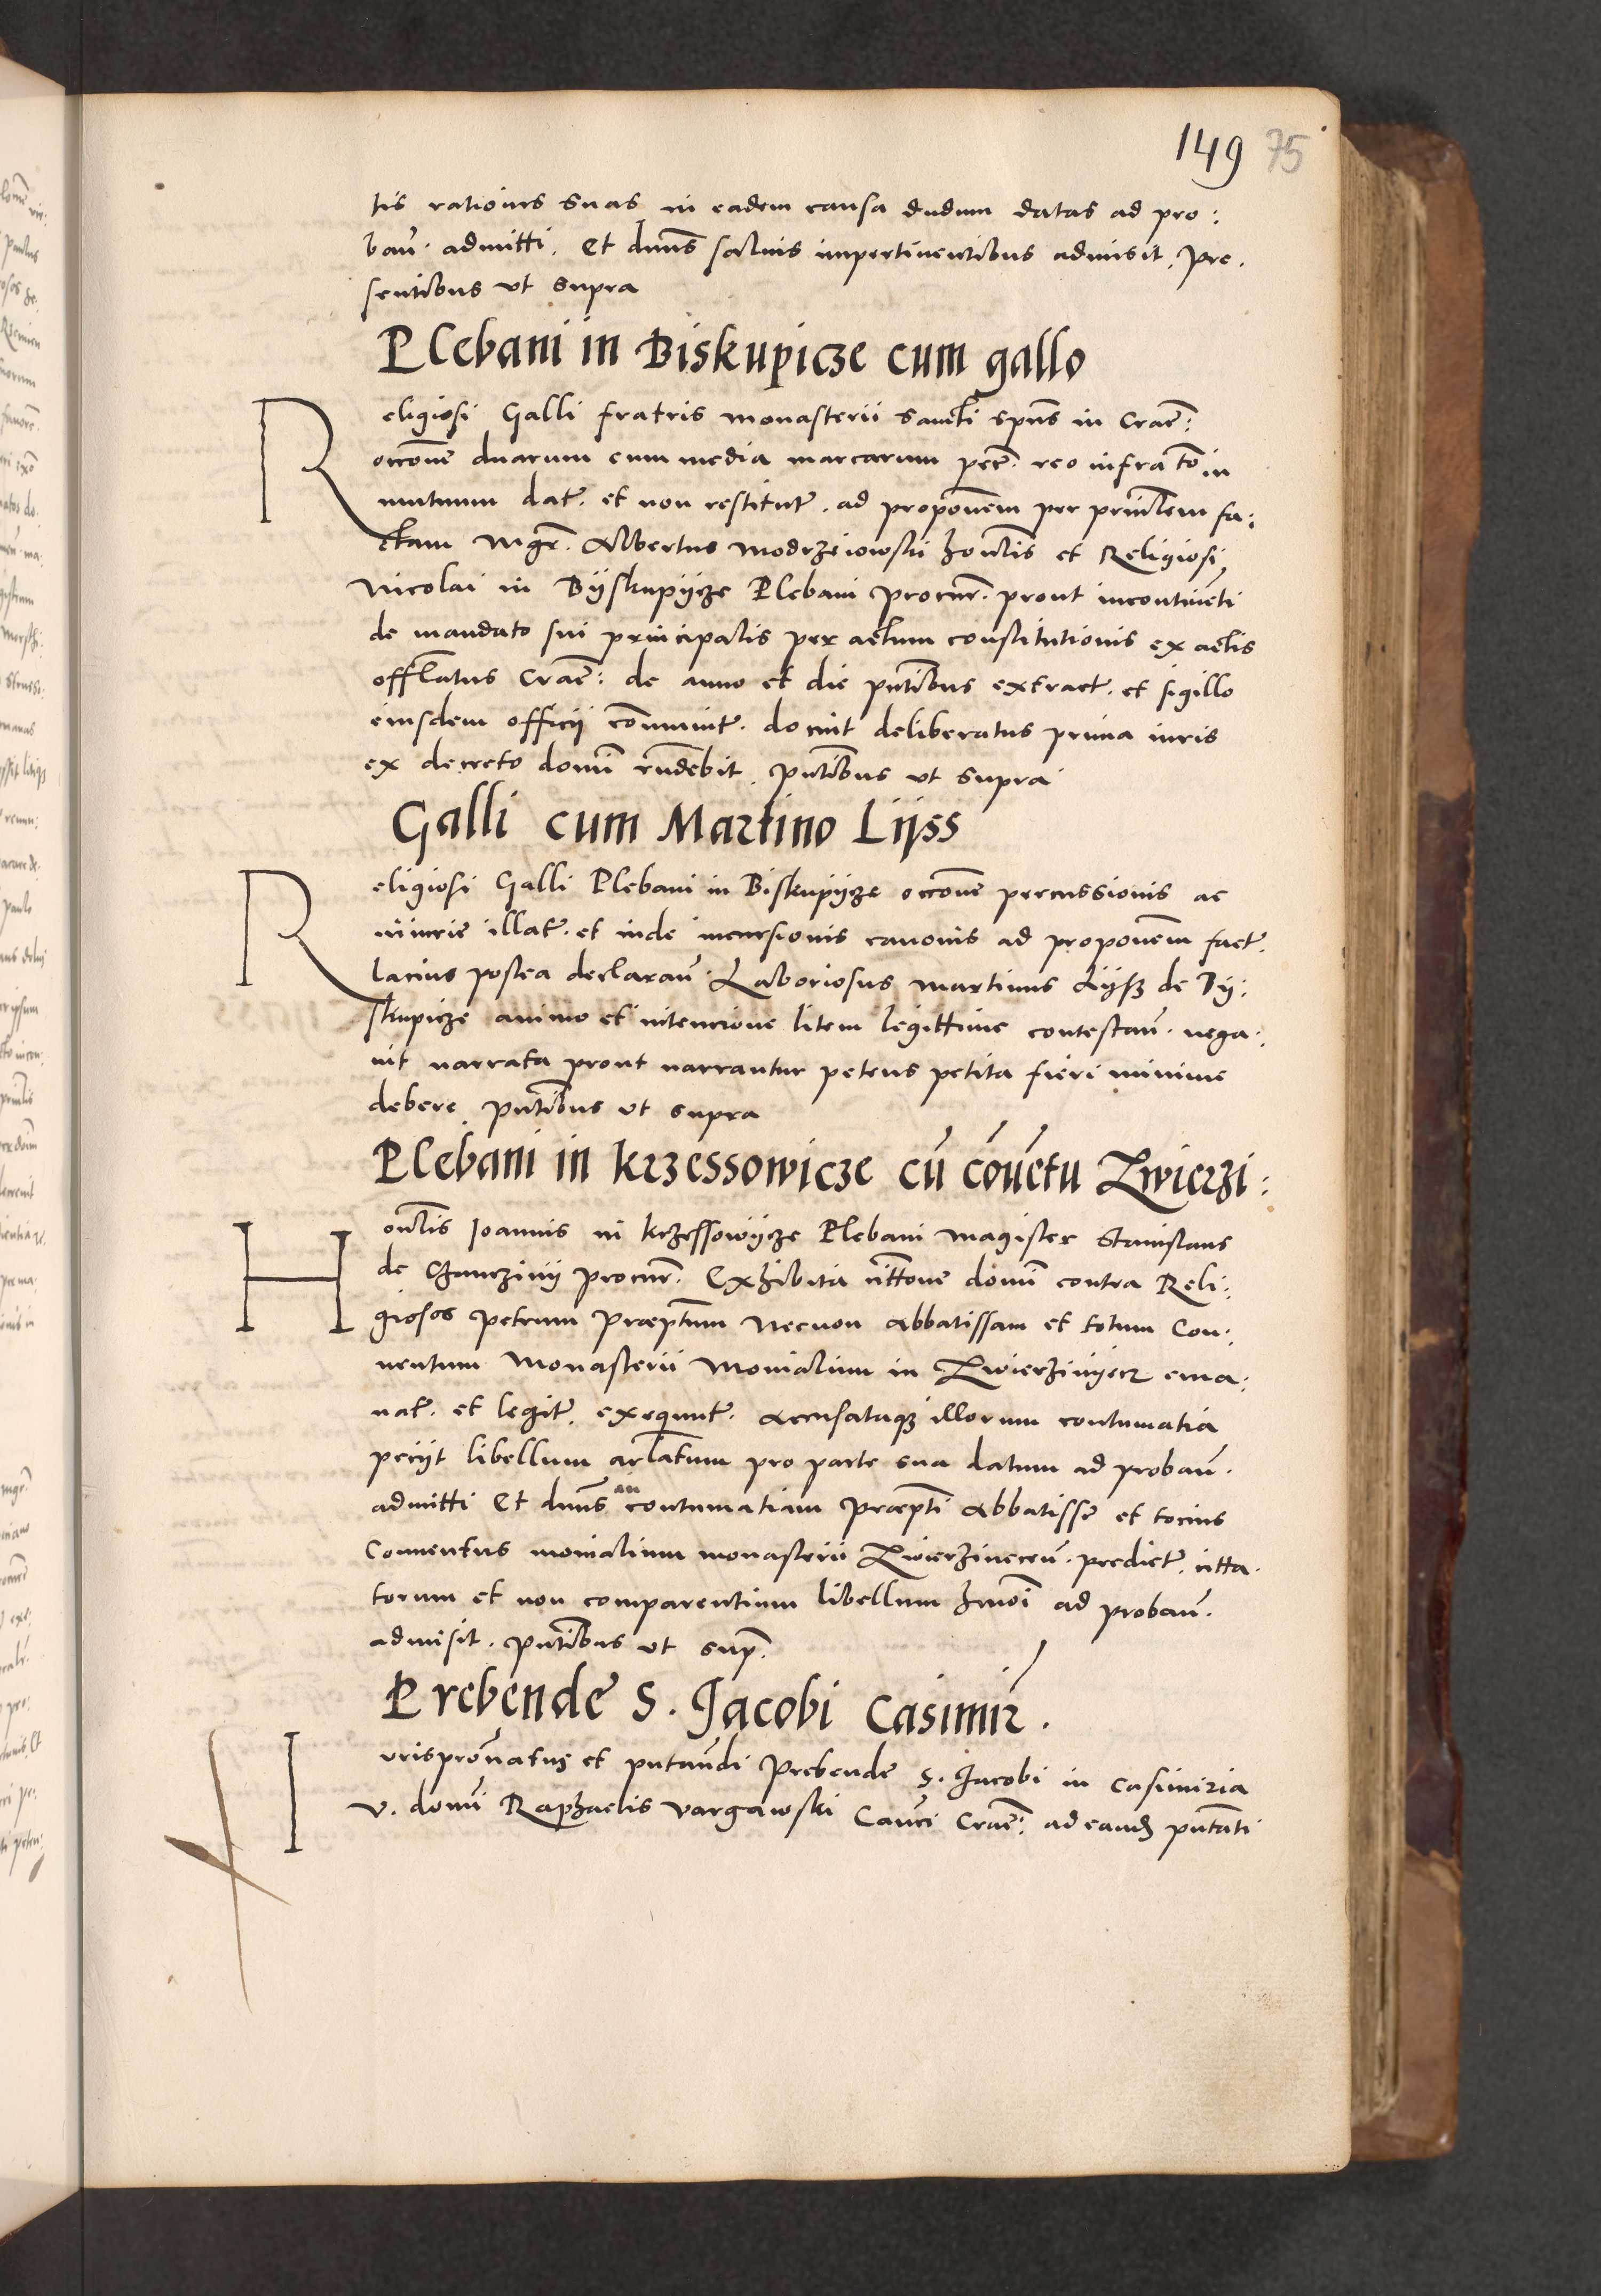 149 75
tis rationis suas in eadem causa dudum datas ad pro:
bañ. admitti. Et dnus saluis impertinentibus admisit. Pre.
sentibus vt supra
Plebani in Biskupicze cum gallo
Religiosi Galli fratris monasterii sancti spus in Crac̃:
occõne duarum cum media marcarum pec̃. reo infra to in
mutuum dat̃. et non restitut̃. ad proponem per prinlem fa:
ctam Mgr̃. Albertus Modrzeiowski honlis et Religiosi
Nicolai in Byskupycze Plebani procur̃. prout incontineti
de mandato sui principalis per actum constitutionis ex actis
offlatus Crac̃: de anno et die pntibus extract̃. et sigillo
eiusdem officij cõmunit̃. docuit deliberatus prima iuris
ex decreto domi rñdebit. pntibus vt supra
Galli cum Martino Lijss
Religiosi Galli Plebani in Biskupycze occõne percussionis ac
iniurie illat̃. et inde incursionis canonis ad proponem fact̃.
lacius postea declarañ. Laboriosus Martinus Lyss de By:
skupicze animo et intencione litem legittime contestañ. nega:
uit narrata prout narrantur petens petita fieri minime
debere. pntibus vt supra
Plebani in krzessowicze cũ cõuẽtu Zwierzi:
Honlis Joannis in krzessowycze Plebani magister Stanislaus
de Chanczyny procur̃. Exhibita cittõne domi contra Reli:
giosos petrum Præptum Necnon Abbatissam et totum Con:
uentum Monasterii Monialium in Zwierzinyecz ema:
nat̃. et legit̃. exequut̃. Accusataque illorum contumatia
peciit libellum arlatum pro parte sua datum ad probañ.
admitti Et dnus an contumatiam Præpti Abbatisse et tocius
Conuentus monialium monasterii Zwierzinecen̄. predict̃. citta.
torum et non comparentium libellum hmoi ad probañ.
admisit. pntibus vt sup̃.
Prebende S. Jacobi Casimir̃.
Jurisproñatus et pntandi Prebende S. Jacobi in Casimiria
V. domi Raphaelis Vargawski Canci Crac̃: ad eand pntati